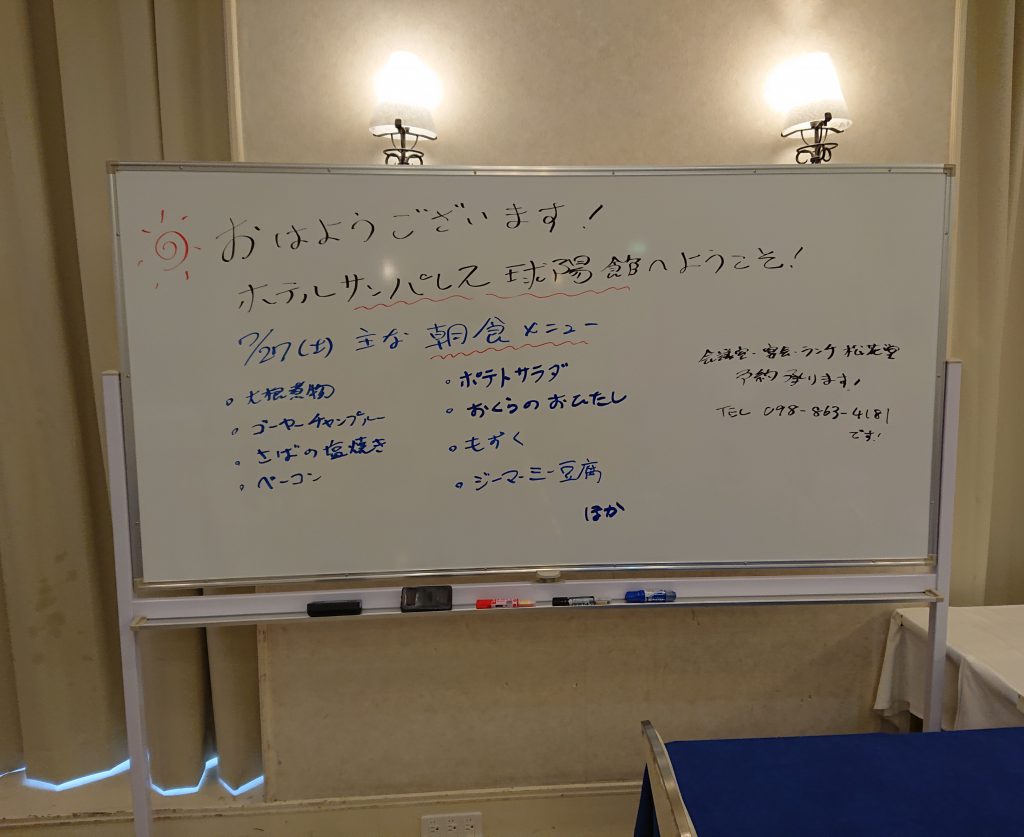 おはようございます!
ホテルサンパレス球陽館へようこそ!
7/27(土) 主な 朝食メニュー
。大根煮物
。ゴーヤーチャンプルー
。さばの塩焼き
。ベーコン
。ポテトサラダ
。おくらのおひたし
。もずく
。ジーマーミー豆腐
ほか
会議室・宴会・ランチ 松花堂
予約承ります!
TEL 098-863-4181
です!